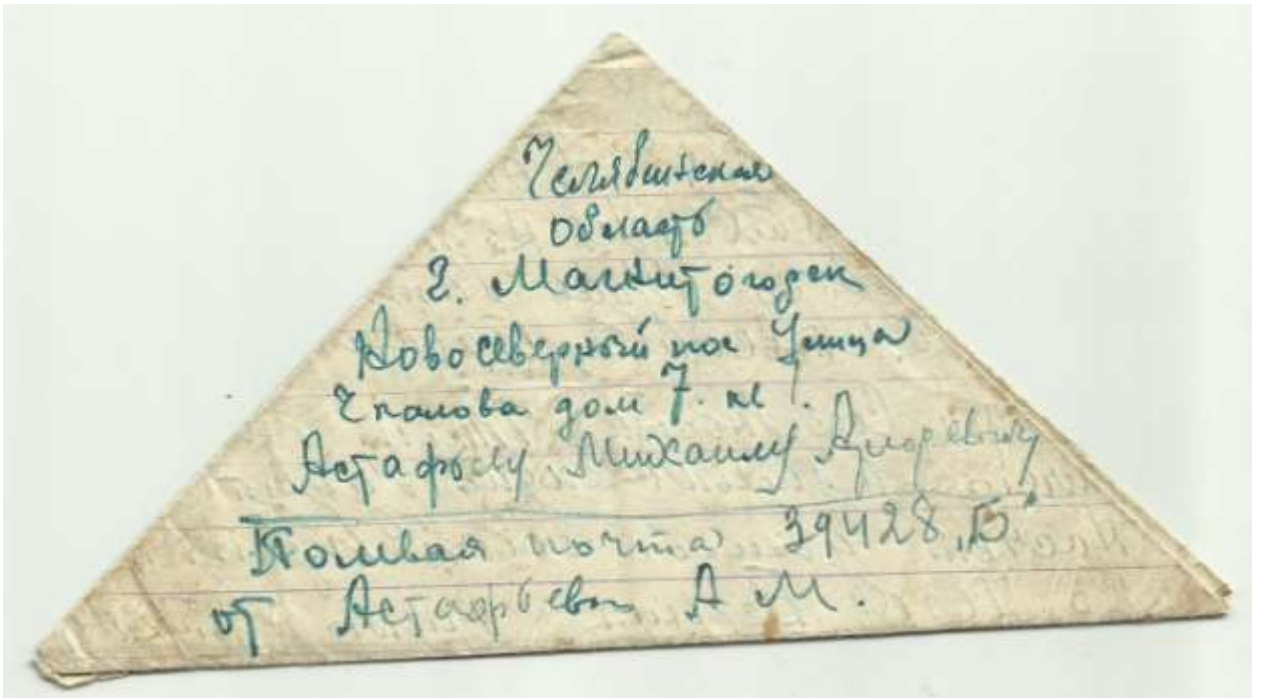 Челябинская
область
г. Магнитогорск
Новосеверный пос Улица
Чкалова дом 7. кв 1.
Астафьеву Михаилу Андреевичу
Полевая почта 39428 „Б"
от Астафьева А М.